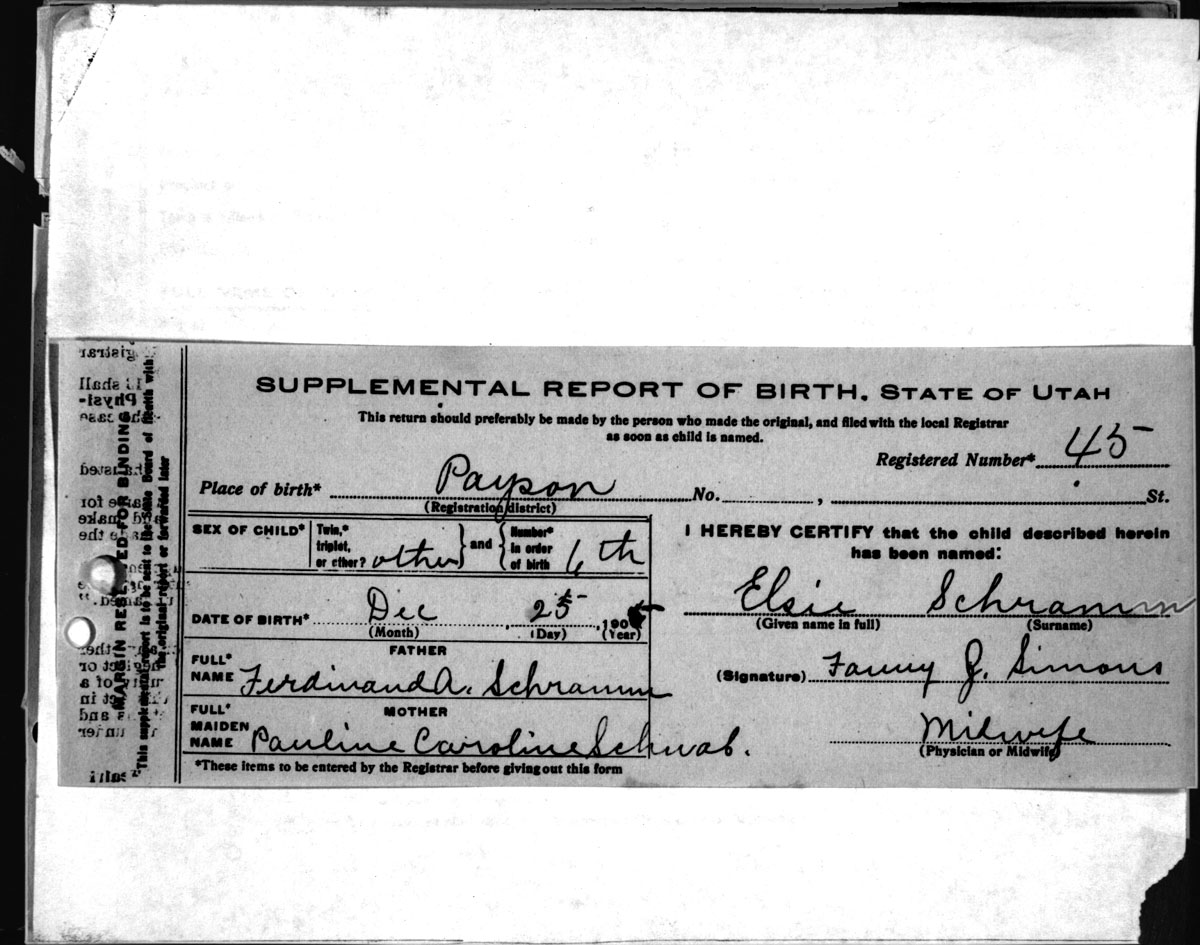 SUPPLEMENTAL REPORT OF BIRTH. STATE OF UTAH
This return should preferably be made by the person who made the original, and filed with the local Registrar
as soon as child is named.
Registered Number* 45
Place of birth* Payson No. , St.
(Registration district)
SEX OF CHILD* Twin,* triplet, or other? other and Number* in order of birth 6th
DATE OF BIRTH* Dec 25, 190
(Month) (Day) (Year)
FATHER
FULL* NAME Ferdinand A. Schramm
MOTHER
FULL* MAIDEN NAME Pauline Caroline Schwab.
*These items to be entered by the Registrar before giving out this form
I HEREBY CERTIFY that the child described herein
has been named:
Elsie Schramm
(Given name in full) (Surname)
(Signature) Fanny J. Simons
Midwife
(Physician or Midwife)
MARGIN RESERVED FOR BINDING
*This supplemental report is to be sent to the State Board of Health with
the original report or forwarded later